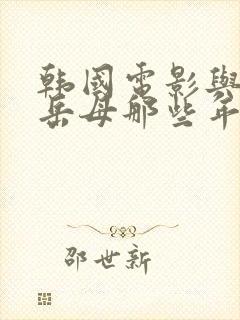 韩國電影與
岳母那些年
邵世新